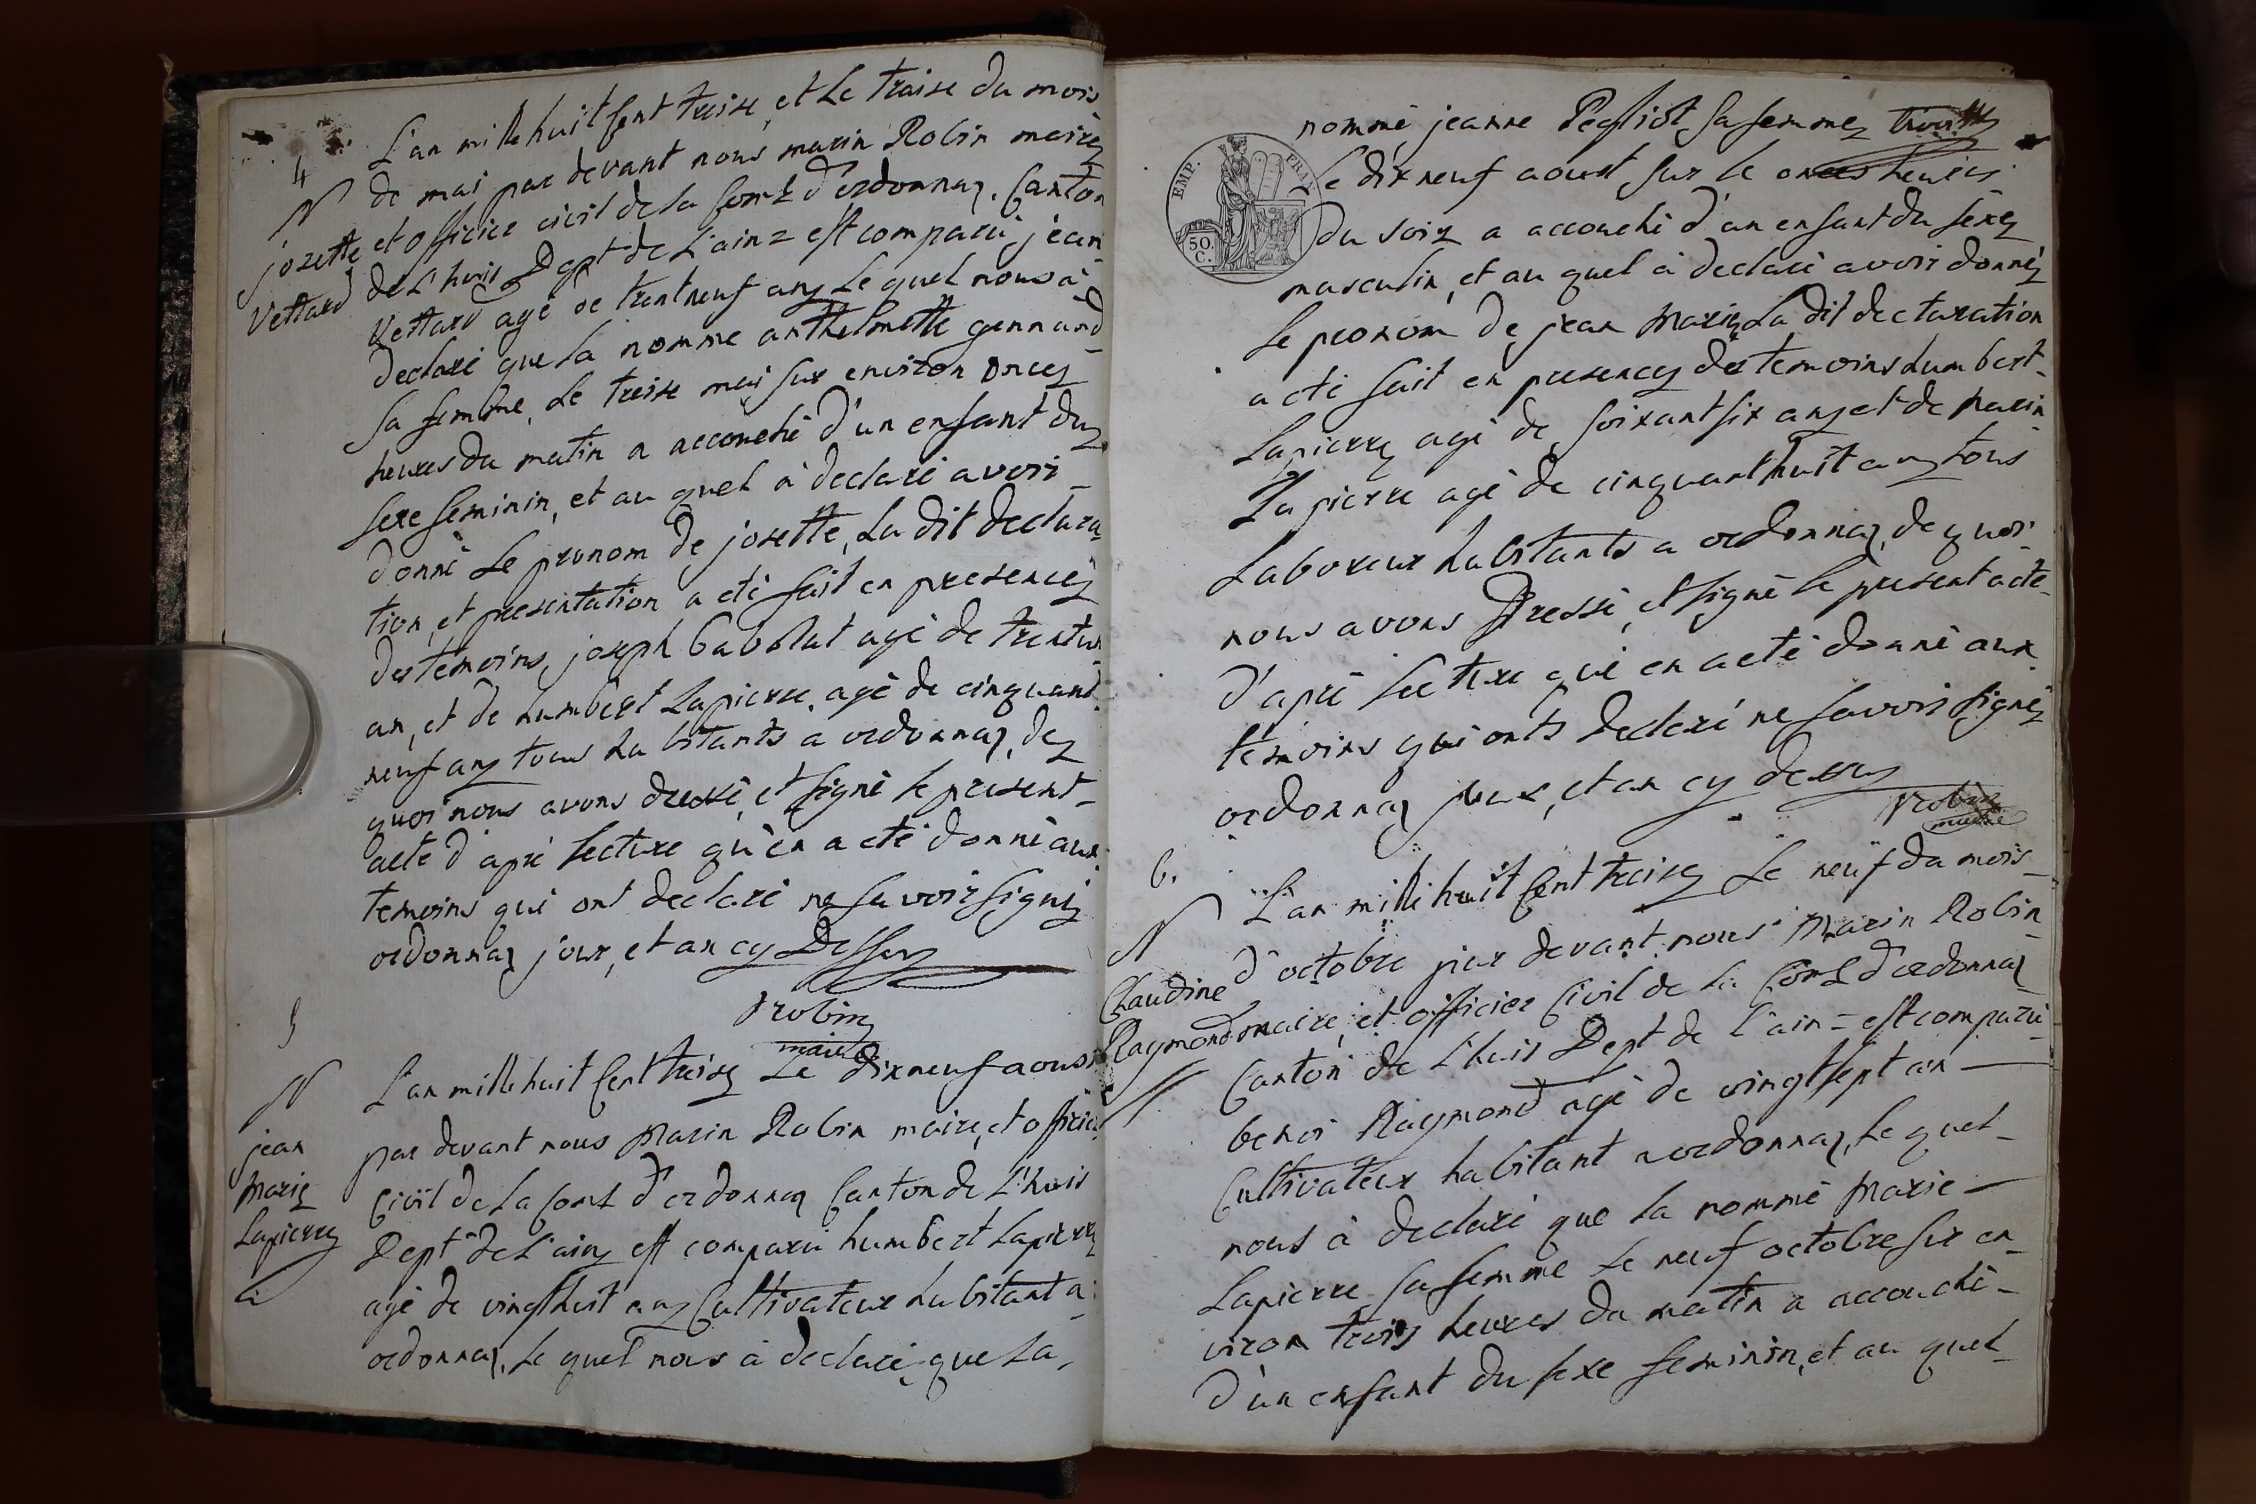 4
N
jozette
Vettard
L'an mille huit sent treise, et le traise du mois
de mai par devant nous marin Robin maire
et officier civil de la Com.e d'ordonnaz. Canton
de L'huis Dept de L'ain = est comparu jean
Vettard agé de trent neuf ans le quel nous à
declaré que la nomme anthelmette gennand
sa femme, Le treise mai sur environ onze
heures du matin a accouché d'un enfant du
sexe feminin, et au quel à declaré avoir
donné Le pronom de josette, La dit declara
tion, et presentation a eté fait en presence
des temoins, joseph Babolat agé de trentun
an, et de humbert Lapierre agé de cinquant
neuf ans tous habitants a ordonnaz, de
quoi nous avons dressé, et signé le present
acte d'apré lecture qu'en a eté donné aux
temoins qui ont declaré ne savoir signé
ordonnaz jour, et an cy Dessus
Robin
maire
5
N
jean
Marie
Lapierre
L'an mille huit Cent treise Le dixneuf aoust
par devant nous Marin Robin maire, et officier
Civil de la Com.e d'ordonnaz Canton de L'huis
Dept de L'ain est comparu humbert Lapierre
agé de vingthuit ans Cultivateur habitant a
ordonnaz, Le quel nous à declaré que La
nommé jeanne Pegliot sa femme
EMP. FRAN
50
C.
Le dixneuf aoust sur le onzes heures
du soir a accouché d'un enfant du sexe
masculin, et au quel à declaré avoir donné
Le pronom de jean Marie La dit declaration
a eté fait en presence des temoins humbert
Lapierre agé de soixant six ans et de Marin
Lapierre agé de cinquant huit ans tous
Laboreur habitants a ordonnaz, de quoi
nous avons Dressé, et signé le present acte
d'apré lecture qui en a eté donné aux
témoins qui onts Declaré ne savoir signé
ordonnaz jour, et an cy dessus
Robin
maire
6.
N
Claudine
Raymond
L'an mille huit Cent treise Le neuf du mois
d'octobre par devant nous Marin Robin
maire, et officier Civil de la Com.e d'ordonnaz
Canton de L'huis Dept de L'ain = est comparu
benoi Raymond agé de vingt sept an
Cultivateur habitant a ordonnaz, Le quel
nous à declaré que la nommé Marie
Lapierre sa femme Le neuf octobre sur en
viron trois heures du matin a accouché
d'un enfant du sexe feminin, et au quel